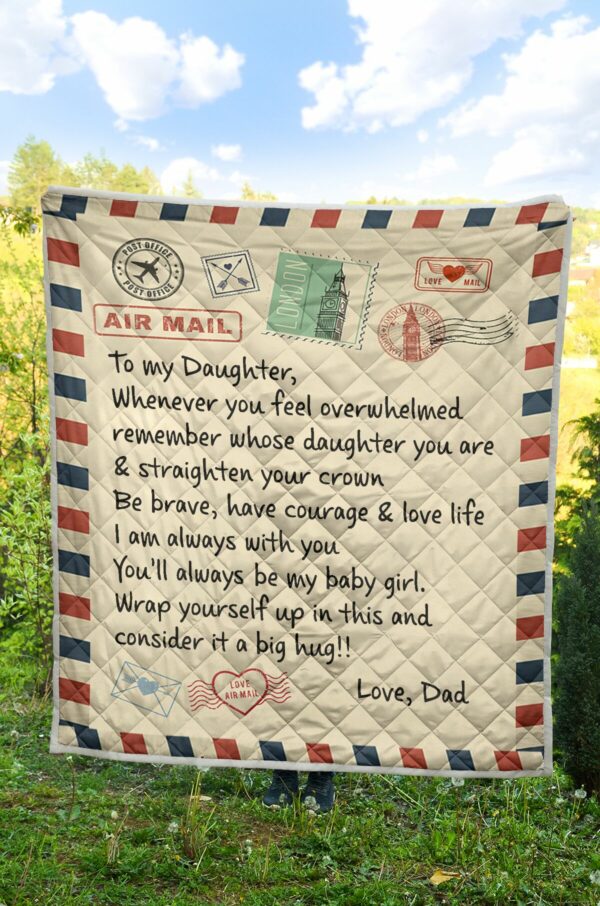 POST OFFICE
POST OFFICE
LONDON
LOVE MAIL
AIR MAIL
LONDON
LONDON
To my Daughter,
Whenever you feel overwhelmed
remember whose daughter you are
& straighten your crown
Be brave, have courage & love life
I am always with you
You'll always be my baby girl.
Wrap yourself up in this and
consider it a big hug!!
LOVE
AIR MAIL
Love, Dad